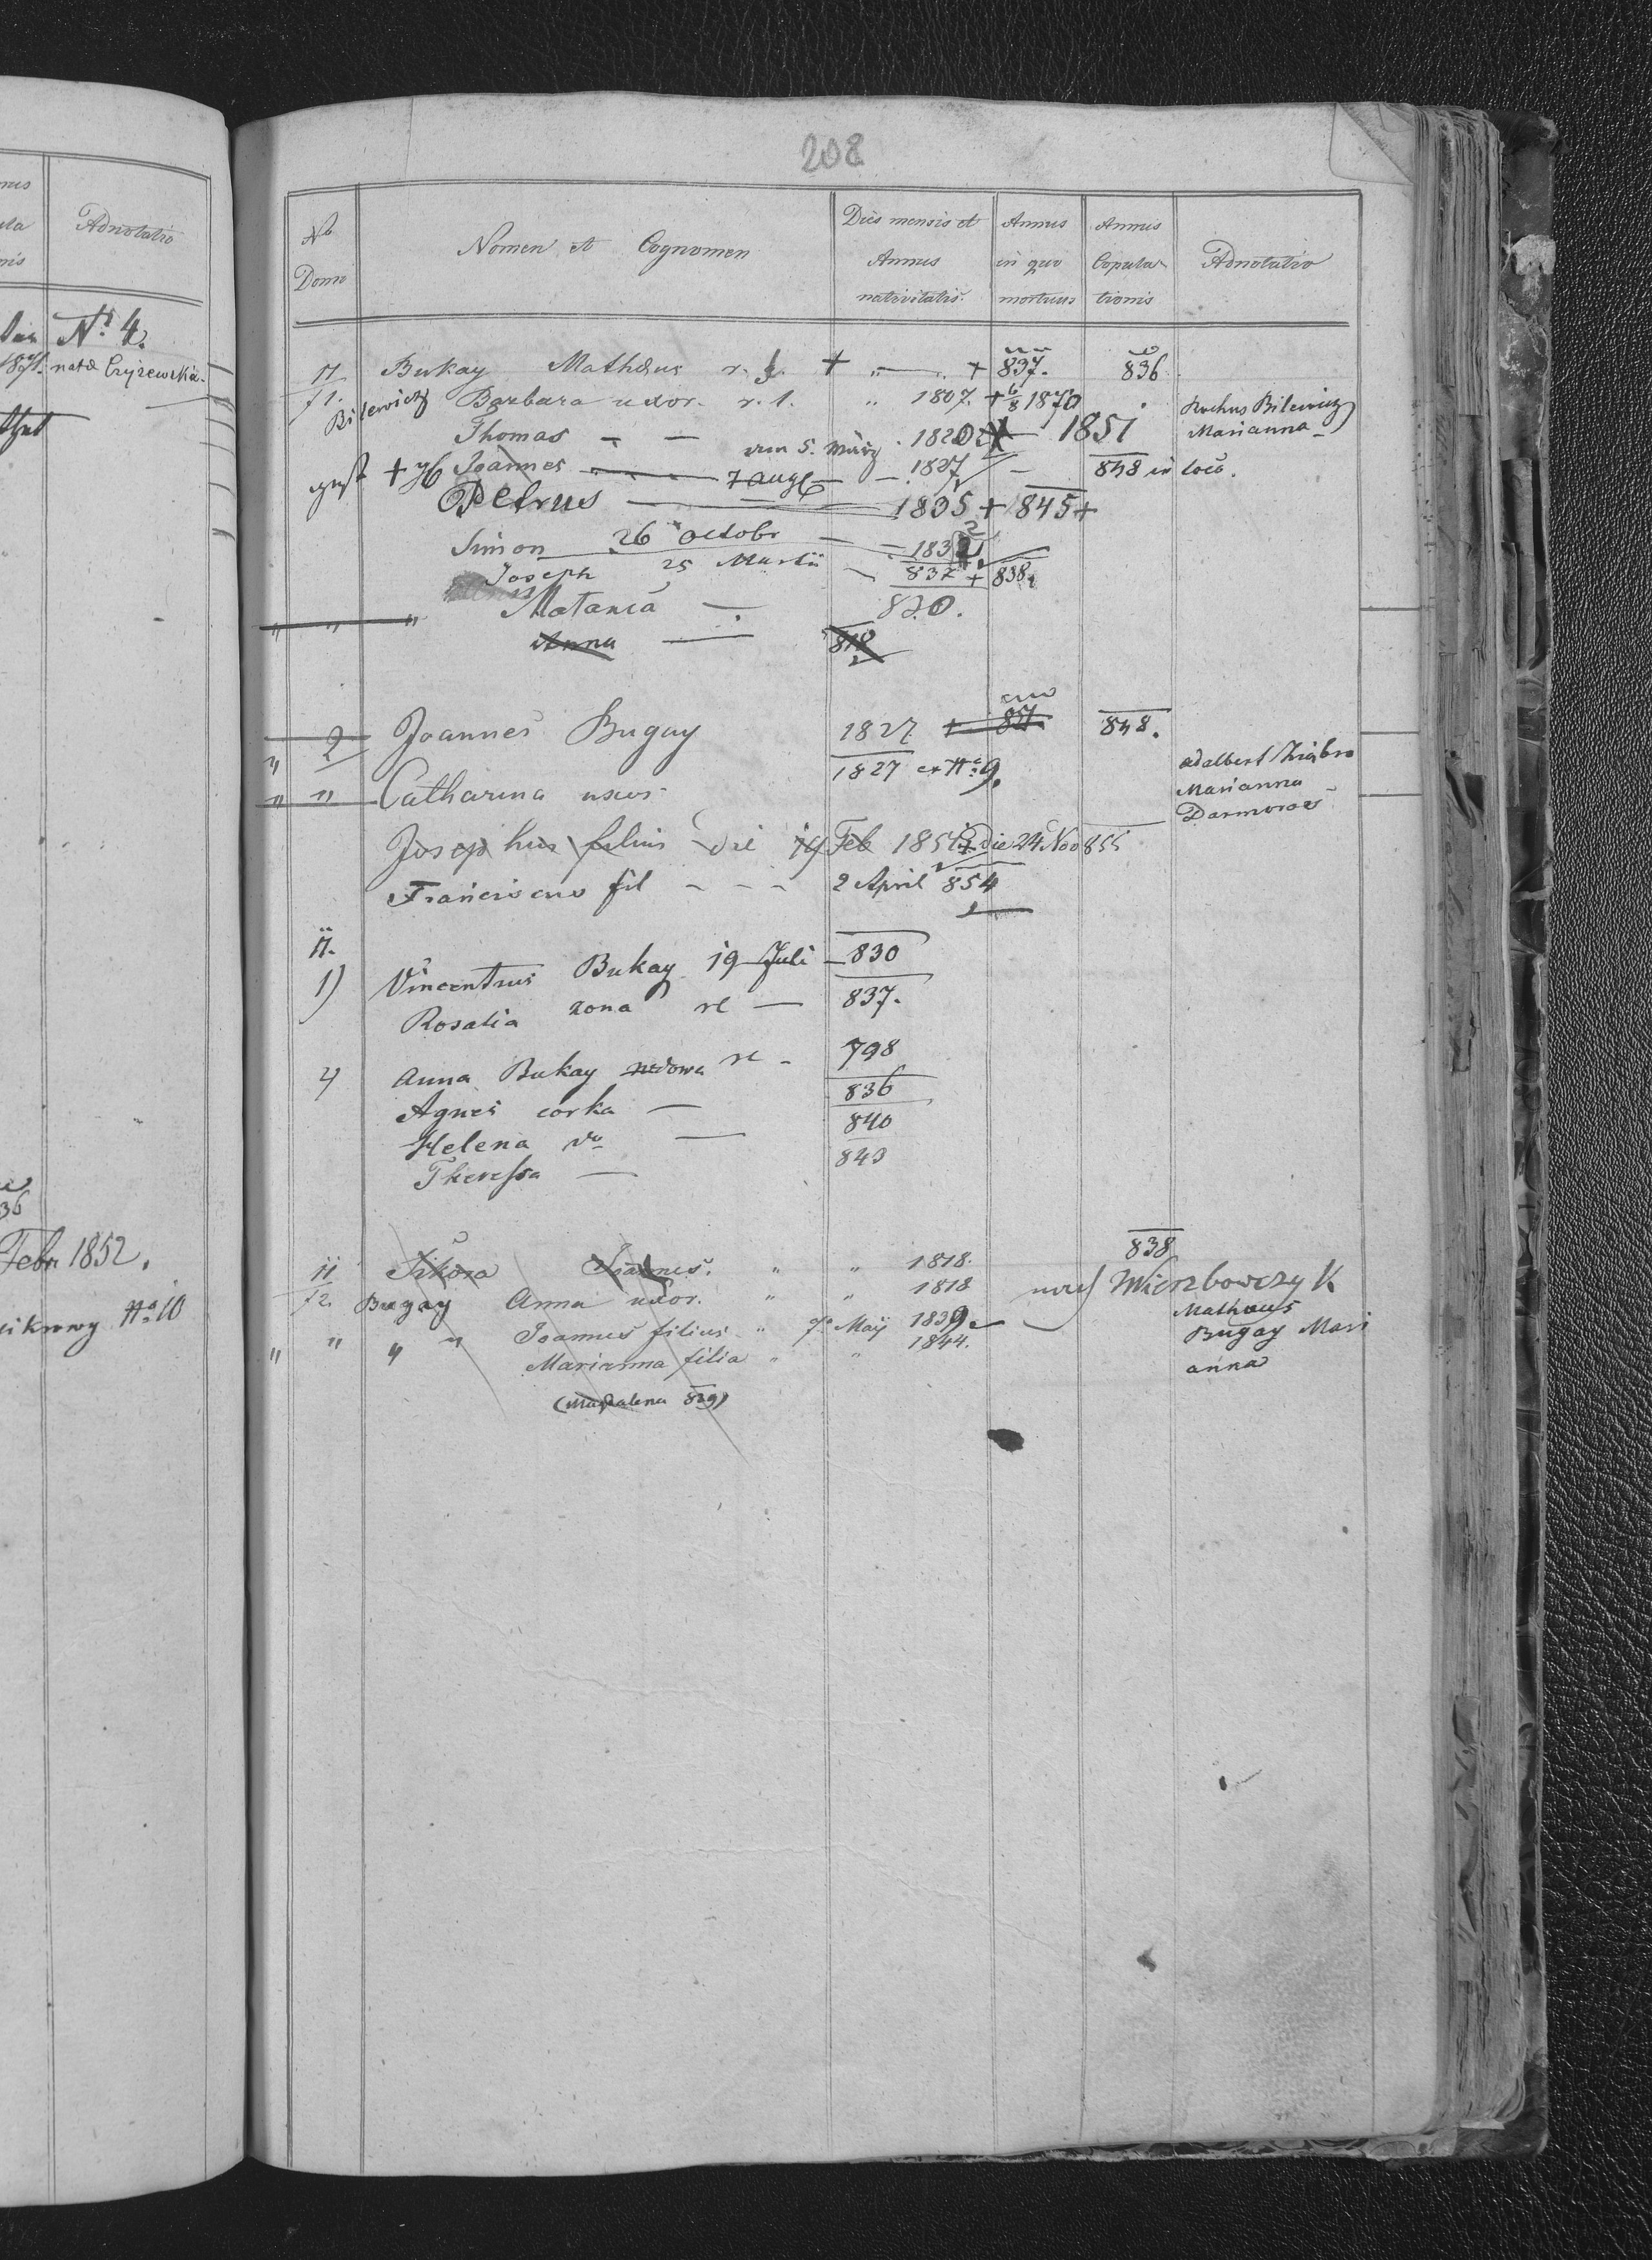 Adnotatio
Nº 4.
1871. nata Czyżewska
Febr 1852.
Nº 10
208
No Domo
Nomen et Cognomen
Dies mensis et Annus nativitatis.
Annus in quo mortuus
Annus Copulationis
Adnotatio
11 Bukay Mathæus r. + " — + 837. 836
/1. Bilewicz Barbara uxor. r. 1. " 1807. + 6/8 1870 Rochus Bilewicz
Thomas — — den 5. März 1820 1851 Marianna
+ Joannes — 7 aug — 1827 — 848 in loco.
Petrus — 1835 + 845 +
Simon 26 Octobr — 1832
Joseph 25 Martii — 837 + 838
" " " Matania — 820.
Anna — 818
" 2 Joannes Bugay 1827 + 851 848.
" " Catharina uxor 1827 ex Nº 9. Adalbert Ziąbro
Marianna
Josephus filius die 14 Feb 1851 + die 24 Nov 855
Franciscus fil - - - 2 April 854
11.
1) Vincentius Bukay 19 Juli — 830
Rosalia zona rl — 837.
Anna Bukay wdowa rl - 798
Agnes corka — 836
Helena do — 840
Theressa — 843
838
11 Sikora Joannes. " " 1818.
/2. Bugay Anna uxor. " " 1818 Wierzbowczyk
Mathaeus
" " " " Joannes filius " 7. Maij 1839 Bugay Mari
Marianna filia " " 1844. anna
(Magdalena 829)